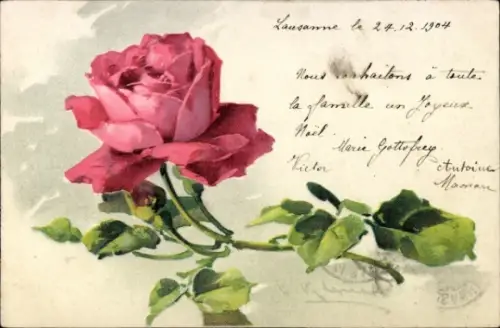 Lausanne le 24.12.1904
Nous souhaitons à toute
la famille un Joyeux
Noël.
Marie Gottofrey
Victor Antoine
Maman